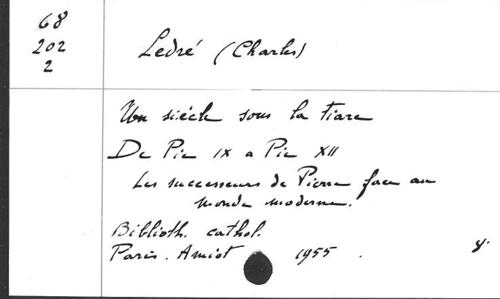 68
202
2
Ledré (Charles)
Un siècle sous la tiare
De Pie IX a Pie XII
Les successeurs de Pierre face au
monde moderne.
Biblioth. cathol.
Paris. Amiot 1955.